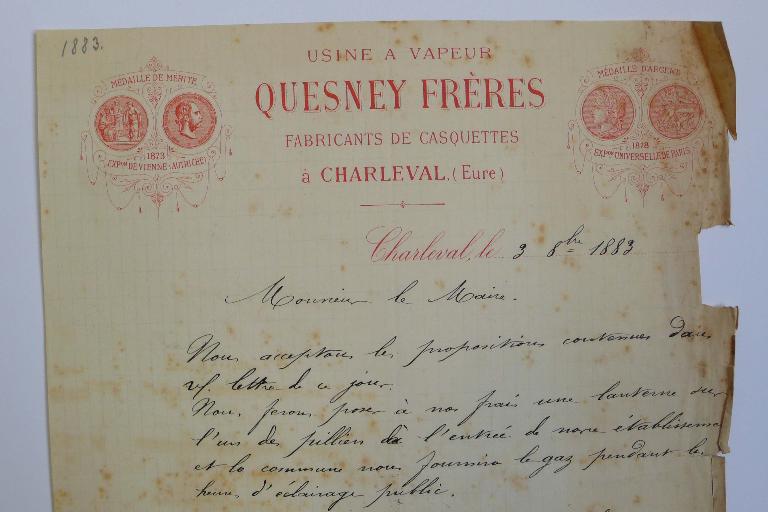 1883.
USINE A VAPEUR
QUESNEY FRÈRES
FABRICANTS DE CASQUETTES
à CHARLEVAL. (Eure)
MÉDAILLE DE MÉRITE
1873
EXPon DE VIENNE (AUTRICHE)
MÉDAILLE D'ARGENT
1878
EXPon UNIVERSELLE DE PARIS
Charleval, le 3 8bre 1883
Monsieur le Maire.
Nous acceptons les propositions contenues dans
lettre de ce jour.
Nous ferons poser à nos frais une lanterne sur
l'un des pilliers de l'entrée de notre établisseme
et la commune nous fournira le gaz pendant les
heures d'éclairage public.